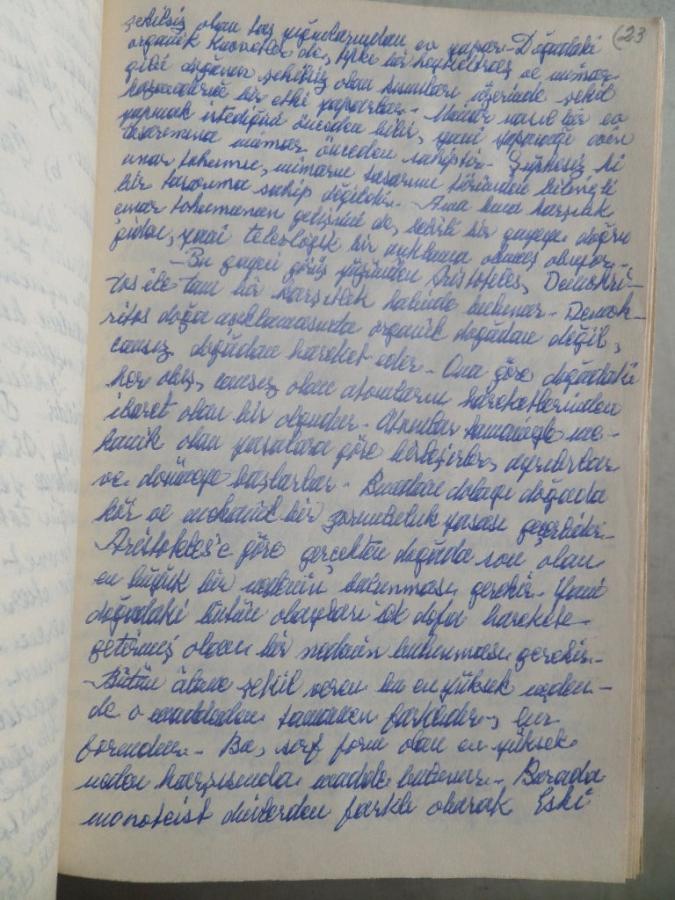 (23
şekilsiz olan taş yığınlarından ev yapar. Doğadaki
organik kuvvetler de, tıpkı bir heykeltraş ve mimar
gibi doğanın şekilsiz olan kısımları üzerinde şekil
bir etki yaparlar. Mimar nasıl bir ev
yapmak istediğini önceden bilir, yani yapacağı evin
tasarımına mimar önceden sahiptir. Şüphesiz ki
tohumu, mimarın tasarımı türünden bilinçli
bir tasarıma sahip değildir. Ama buna karşılık
tohumunun gelişimi de, belirli bir gayeye doğru
gider, yani teleolojik bir açıklama olmuş oluyor.
- Bu gayeci görüş yüzünden Aristoteles, Demokri-
tos ile tam bir karşıtlık halinde bulunur. Demok-
ritos doğa açıklamasında organik doğadan değil,
cansız doğadan hareket eder. Ona göre doğadaki
her oluş, cansız olan atomların hareketlerinden
ibaret olan bir olgudur. Atomlar tamamıyle me-
kanik olan yasalara göre birleşirler, ayrılırlar
ve dönmeye başlarlar. Bundan dolayı doğada
kör ve mekanik bir zorunluluk yasası geçerlidir.
Aristoteles'e göre gerçekten doğada son olan
en büyük bir nedenin bulunması gerekir. Yani
doğadaki bütün olayları ilk defa harekete
getirmiş olan bir nedenin bulunması gerekir.
Bütün âleme şekil veren bu en yüksek neden
de o maddeden tamamen farklıdır,
formdur. Bu, sırf form olan en yüksek
neden karşısında madde bulunur. Burada
monoteist dinlerden farklı olarak Eski